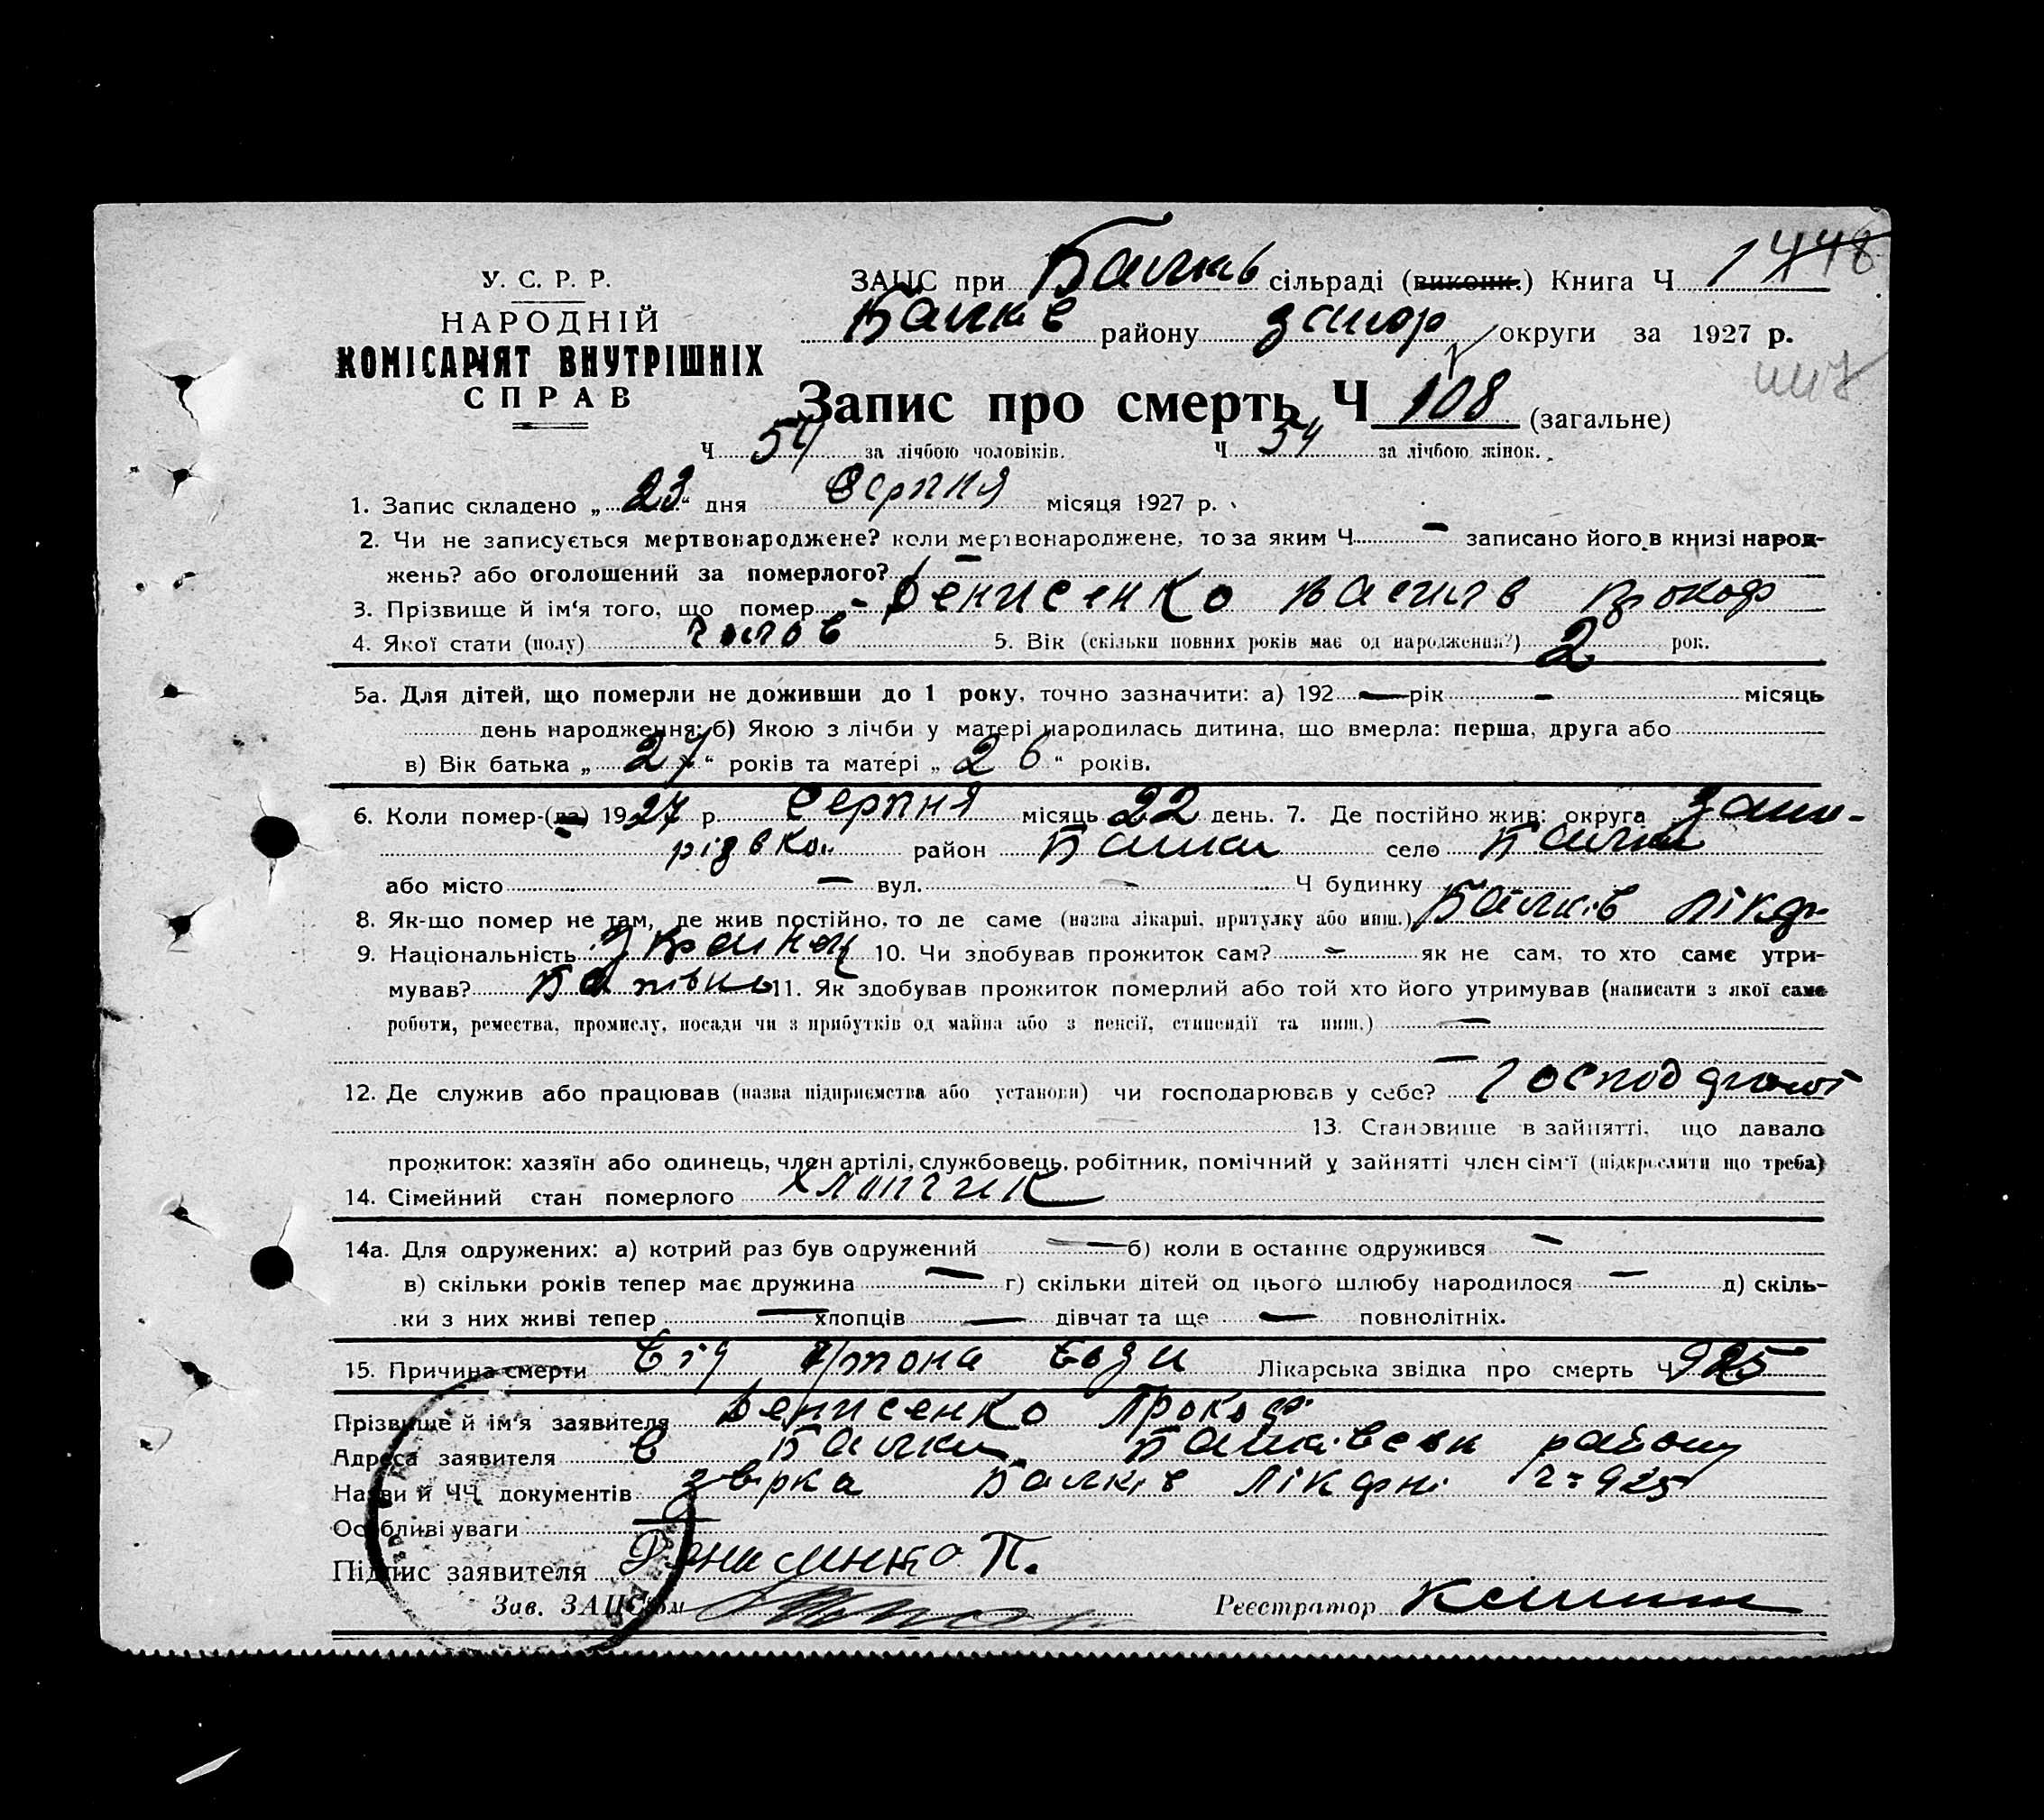 У. С. Р. Р.
НАРОДНІЙ
КОМІСАРІЯТ ВНУТРІШНІХ
СПРАВ
ЗАЦС при Балків сільраді (виконк.) Книга Ч 1
Балків району Запор округи за 1927 р.
Запис про смерть Ч 108 (загальне)
Ч 54 за лічбою чоловіків. Ч 54 за лічбою жінок.
1. Запис складено „23“ дня Серпня місяця 1927 р.
2. Чи не записується мертвонароджене? коли мертвонароджене, то за яким Ч — записано його в книзі народ-
жень? або оголошений за померлого? —
3. Прізвище й ім‘я того, що помер - Денисенко Василь Прокоф
4. Якої стати (полу) чолов 5. Вік (скільки повних років має од народження?) 2 рок.
5а. Для дітей, що померли не доживши до 1 року, точно зазначити: а) 192 — рік — місяць
день народження; б) Якою з лічби у матері народилась дитина, що вмерла: перша, друга або
в) Вік батька „27“ років та матері „26“ років.
6. Коли помер-(ла) 1927 р. Серпня місяць 22 день. 7. Де постійно жив: округа Запо-
різько район Балки село Балки
або місто — вул. — Ч будинку
8. Як-що помер не там, де жив постійно, то де саме (назва лікарні, притулку або инш.) Балків лікар
9. Національність Украинец 10. Чи здобував прожиток сам? — як не сам, то хто саме утри-
мував? Батько 11. Як здобував прожиток померлий або той хто його утримував (написати з якої саме
роботи, ремества, промислу, посади чи з прибутків од майна або з пенсії, стипендії та инш.) —
—
12. Де служив або працював (назва підприємства або установи) чи господарював у себе? Господ
13. Становище в зайнятті, що давало
прожиток: хазяїн або одинець, член артілі, службовець, робітник, помічний у зайнятті член сім‘ї (підкреслити що треба)
14. Сімейний стан померлого хлопчик
14а. Для одружених: а) котрий раз був одружений — б) коли в останнє одружився —
в) скільки років тепер має дружина — г) скільки дітей од цього шлюбу народилося — д) скіль-
ки з них живі тепер — хлопців — дівчат та ще — повнолітніх.
15. Причина смерти Від Лікарська звідка про смерть Ч 925
Прізвище й ім‘я заявителя Денисенко Прокоф
Адреса заявителя с Балки Балківськ району
Назви й ЧЧ документів Балків Лікарні Ч: 925
Особливі уваги —
Підпис заявителя Денисенко П.
Зав. ЗАЦС‘ом Реєстратор